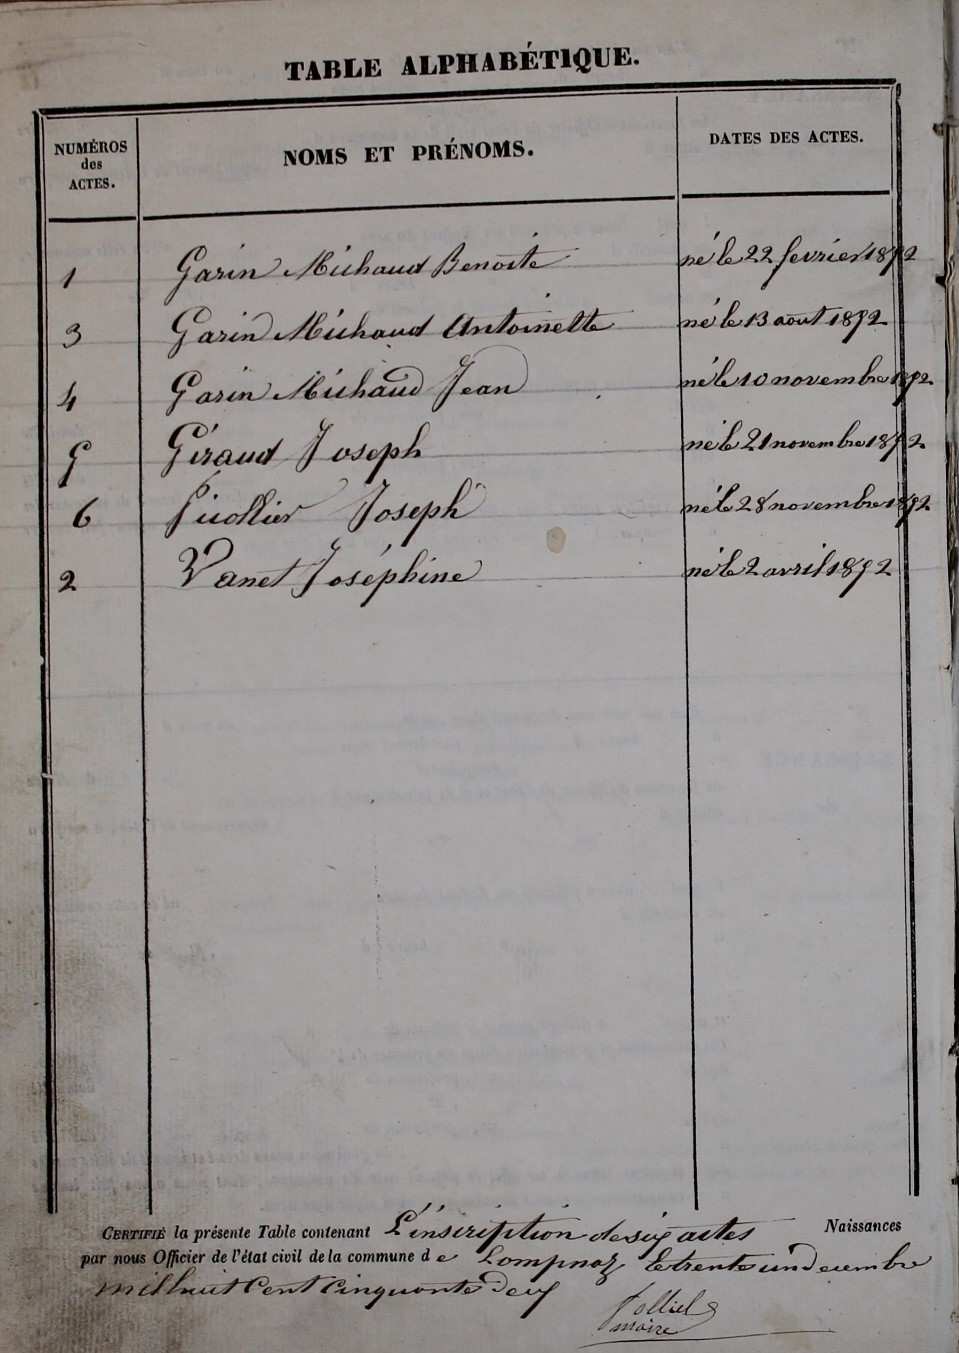 TABLE ALPHABÉTIQUE.
NUMÉROS des ACTES. NOMS ET PRÉNOMS. DATES DES ACTES.
1 Garin Michaud Benoite né le 22 fevrier 1852
3 Garin Michaud Antoinette né le 13 aout 1852
4 Garin Michaud Jean né le 10 novembre 1852
5 Géraud Joseph né le 21 novembre 1852
6 Joseph né le 28 novembre 1852
2 Vanet Joséphine né le 2 avril 1852
CERTIFIÉ la présente Table contenant L'inscription de six actes Naissances
par nous Officier de l'état civil de la commune de Lompnaz le trente un decembre
mil huit Cent Cinquante deux
maire